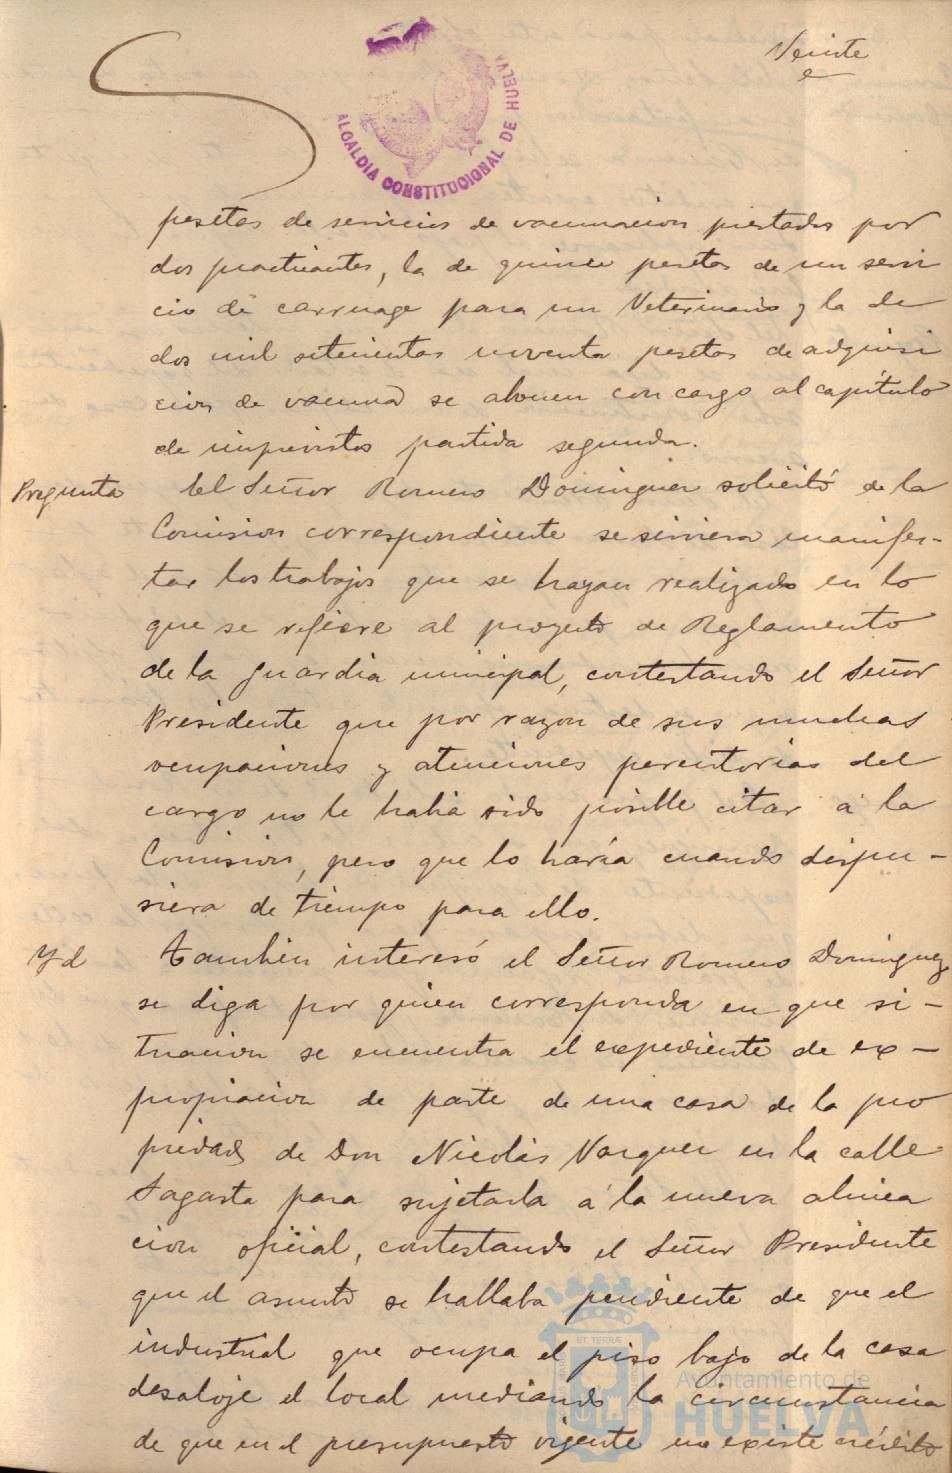 Veinte
ALCALDIA CONSTITUCIONAL DE HUELVA
pesetas de servicios de vacunacion prestados por
dos practicantes, la de quince pesetas de un servi
cio de carruage para un Veterinario y la de
dos mil setecientas noventa pesetas de adquisi
cion de vacuna se abonen con cargo al capítulo
de imprevistos partida segunda.
Pregunta El Señor Romero Dominguez solicitó de la
Comision correspondiente se sirviera manifes-
tar los trabajos que se hayan realizado en lo
que se refiere al proyecto de Reglamento
de la guardia municipal, contestando el Señor
Presidente que por razon de sus muchas
ocupaciones y atenciones perentorias del
cargo no le habia sido posible citar á la
Comision, pero que lo haría cuando dispu-
siera de tiempo para ello.
Yd Tambien interesó el Señor Romero Dominguez
se diga por quien corresponda en que si-
tuacion se encuentra el expediente de ex-
propiacion de parte de una casa de la pro
piedad de Don Nicolás Vazquez en la calle
Sagasta para sujetarla á la nueva alinea
cion oficial, contestando el Señor Presidente
que el asunto se hallaba pendiente de que el
industrial que ocupa el piso bajo de la casa
desaloje el local mediando la circunstancia
de que en el presupuesto vigente no existe crédito
Ayuntamiento de
HUELVA